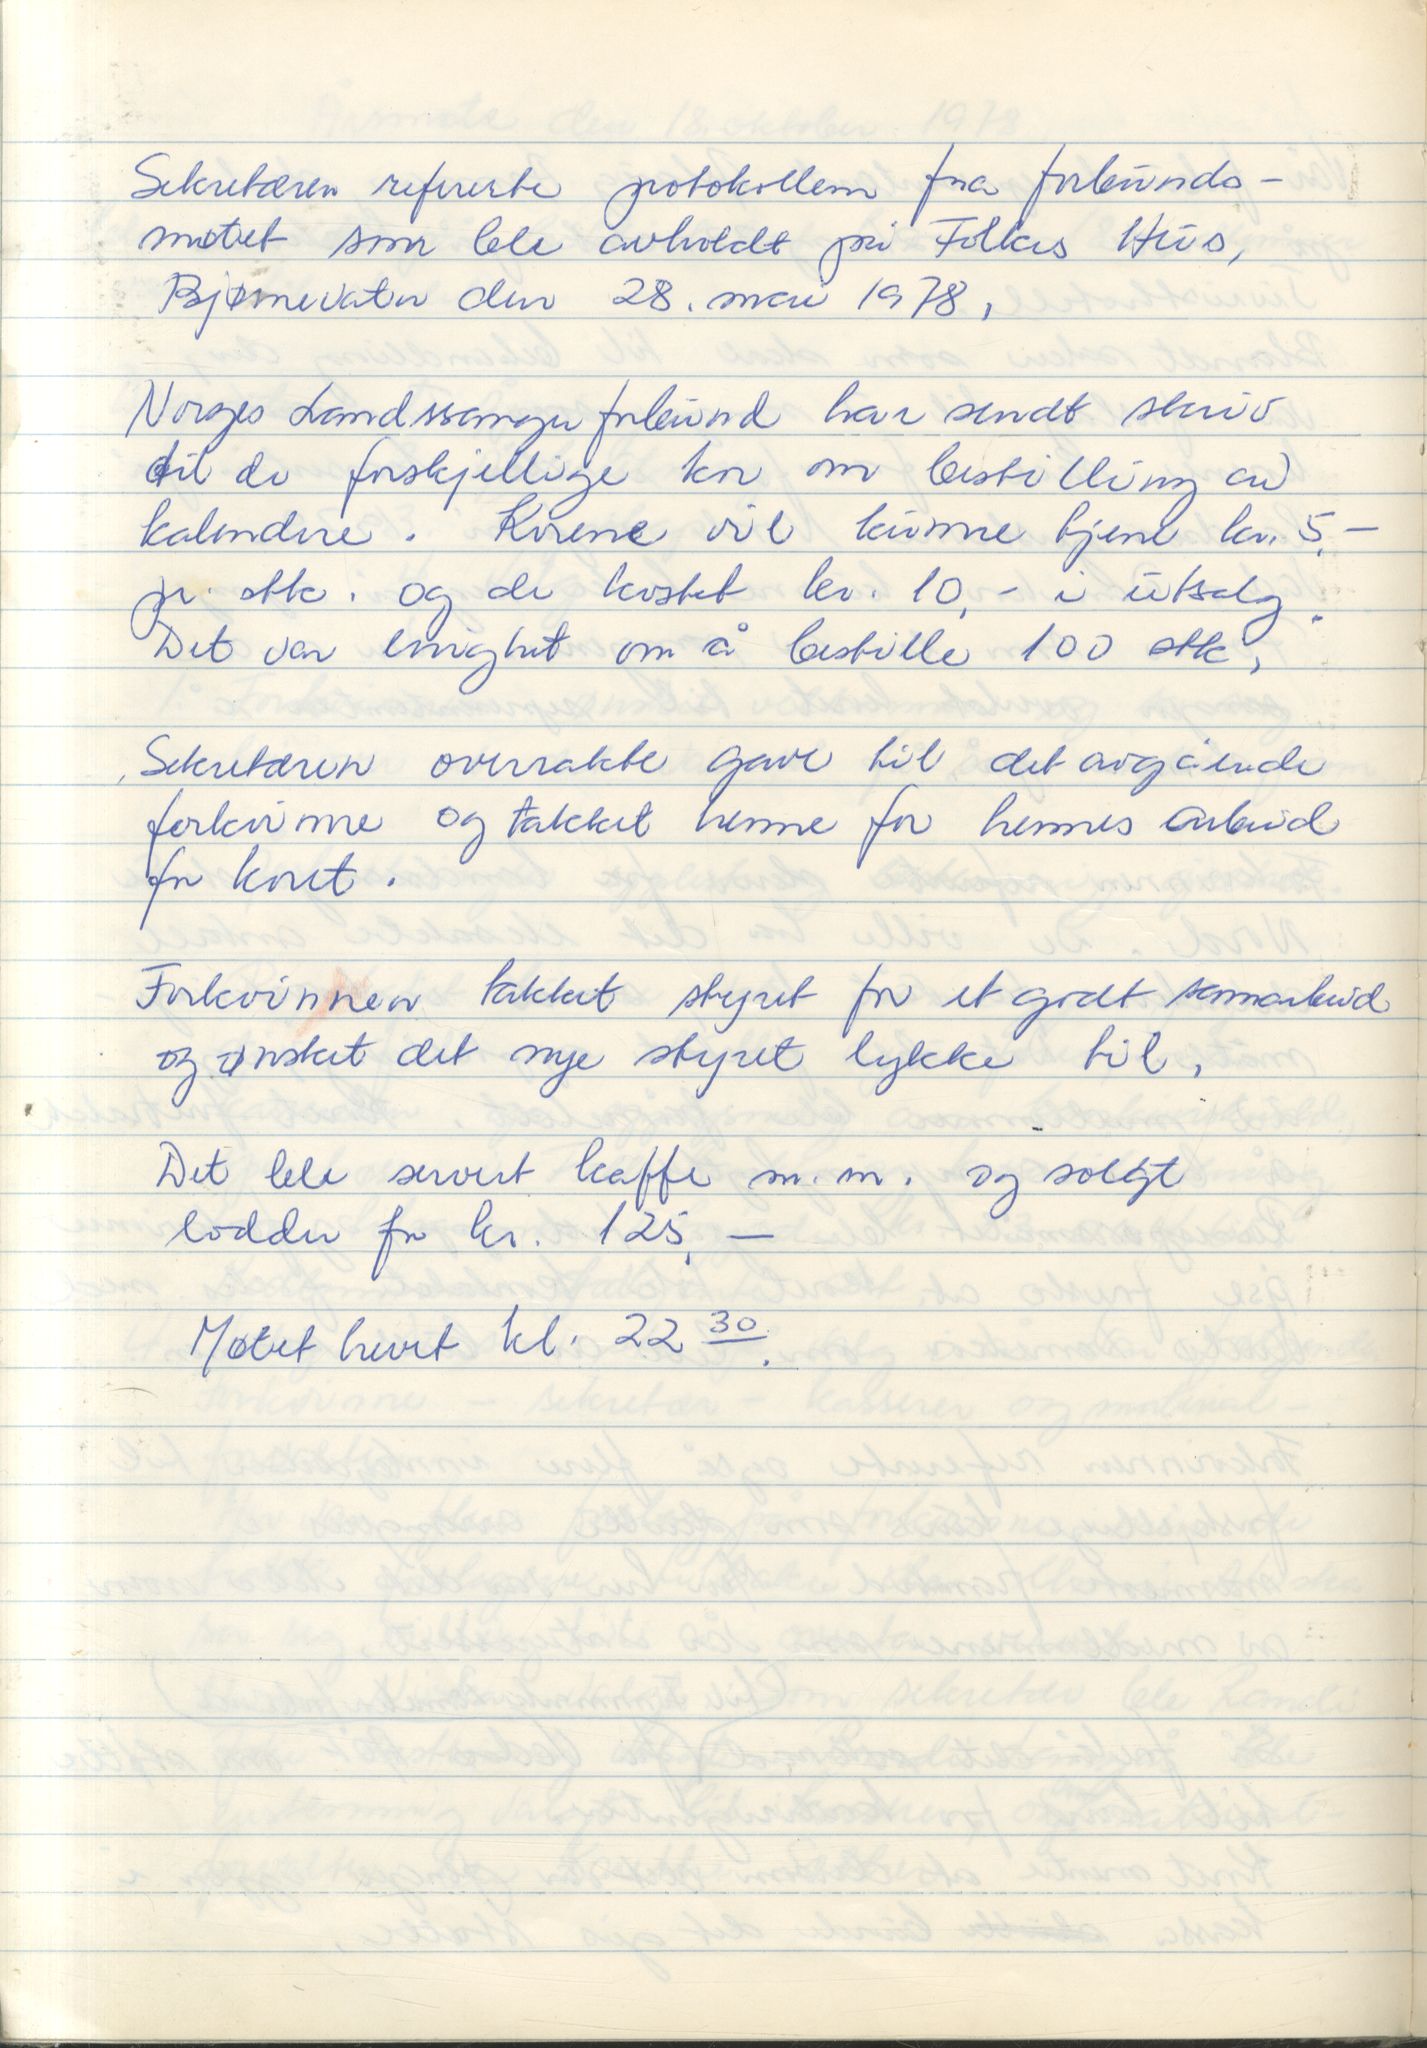 Sekretæren refererte protokollen fra forbunds-
møtet som ble avholdt på Folkes Hus,
Bjørnevatn den 28. mai 1978.
Norges Landssangerforbund har sendt skriv
til de forskjellige kor om bestilling av
kalendere. Korene vil kunne tjene kr. 5,-
pr. stk. og de kostet kr. 10,- i utsalg.
Det var enighet om å bestille 100 stk.
Sekretæren overrakte gave til det avgående
forkvinne og takket henne for hennes arbeid
for koret.
Forkvinnen takket styret for et godt samarbeid
og ønsket det nye styret lykke til.
Det ble servert kaffe m.m. og solgt
lodder for kr. 125,-
Møtet hevet kl. 22 30.